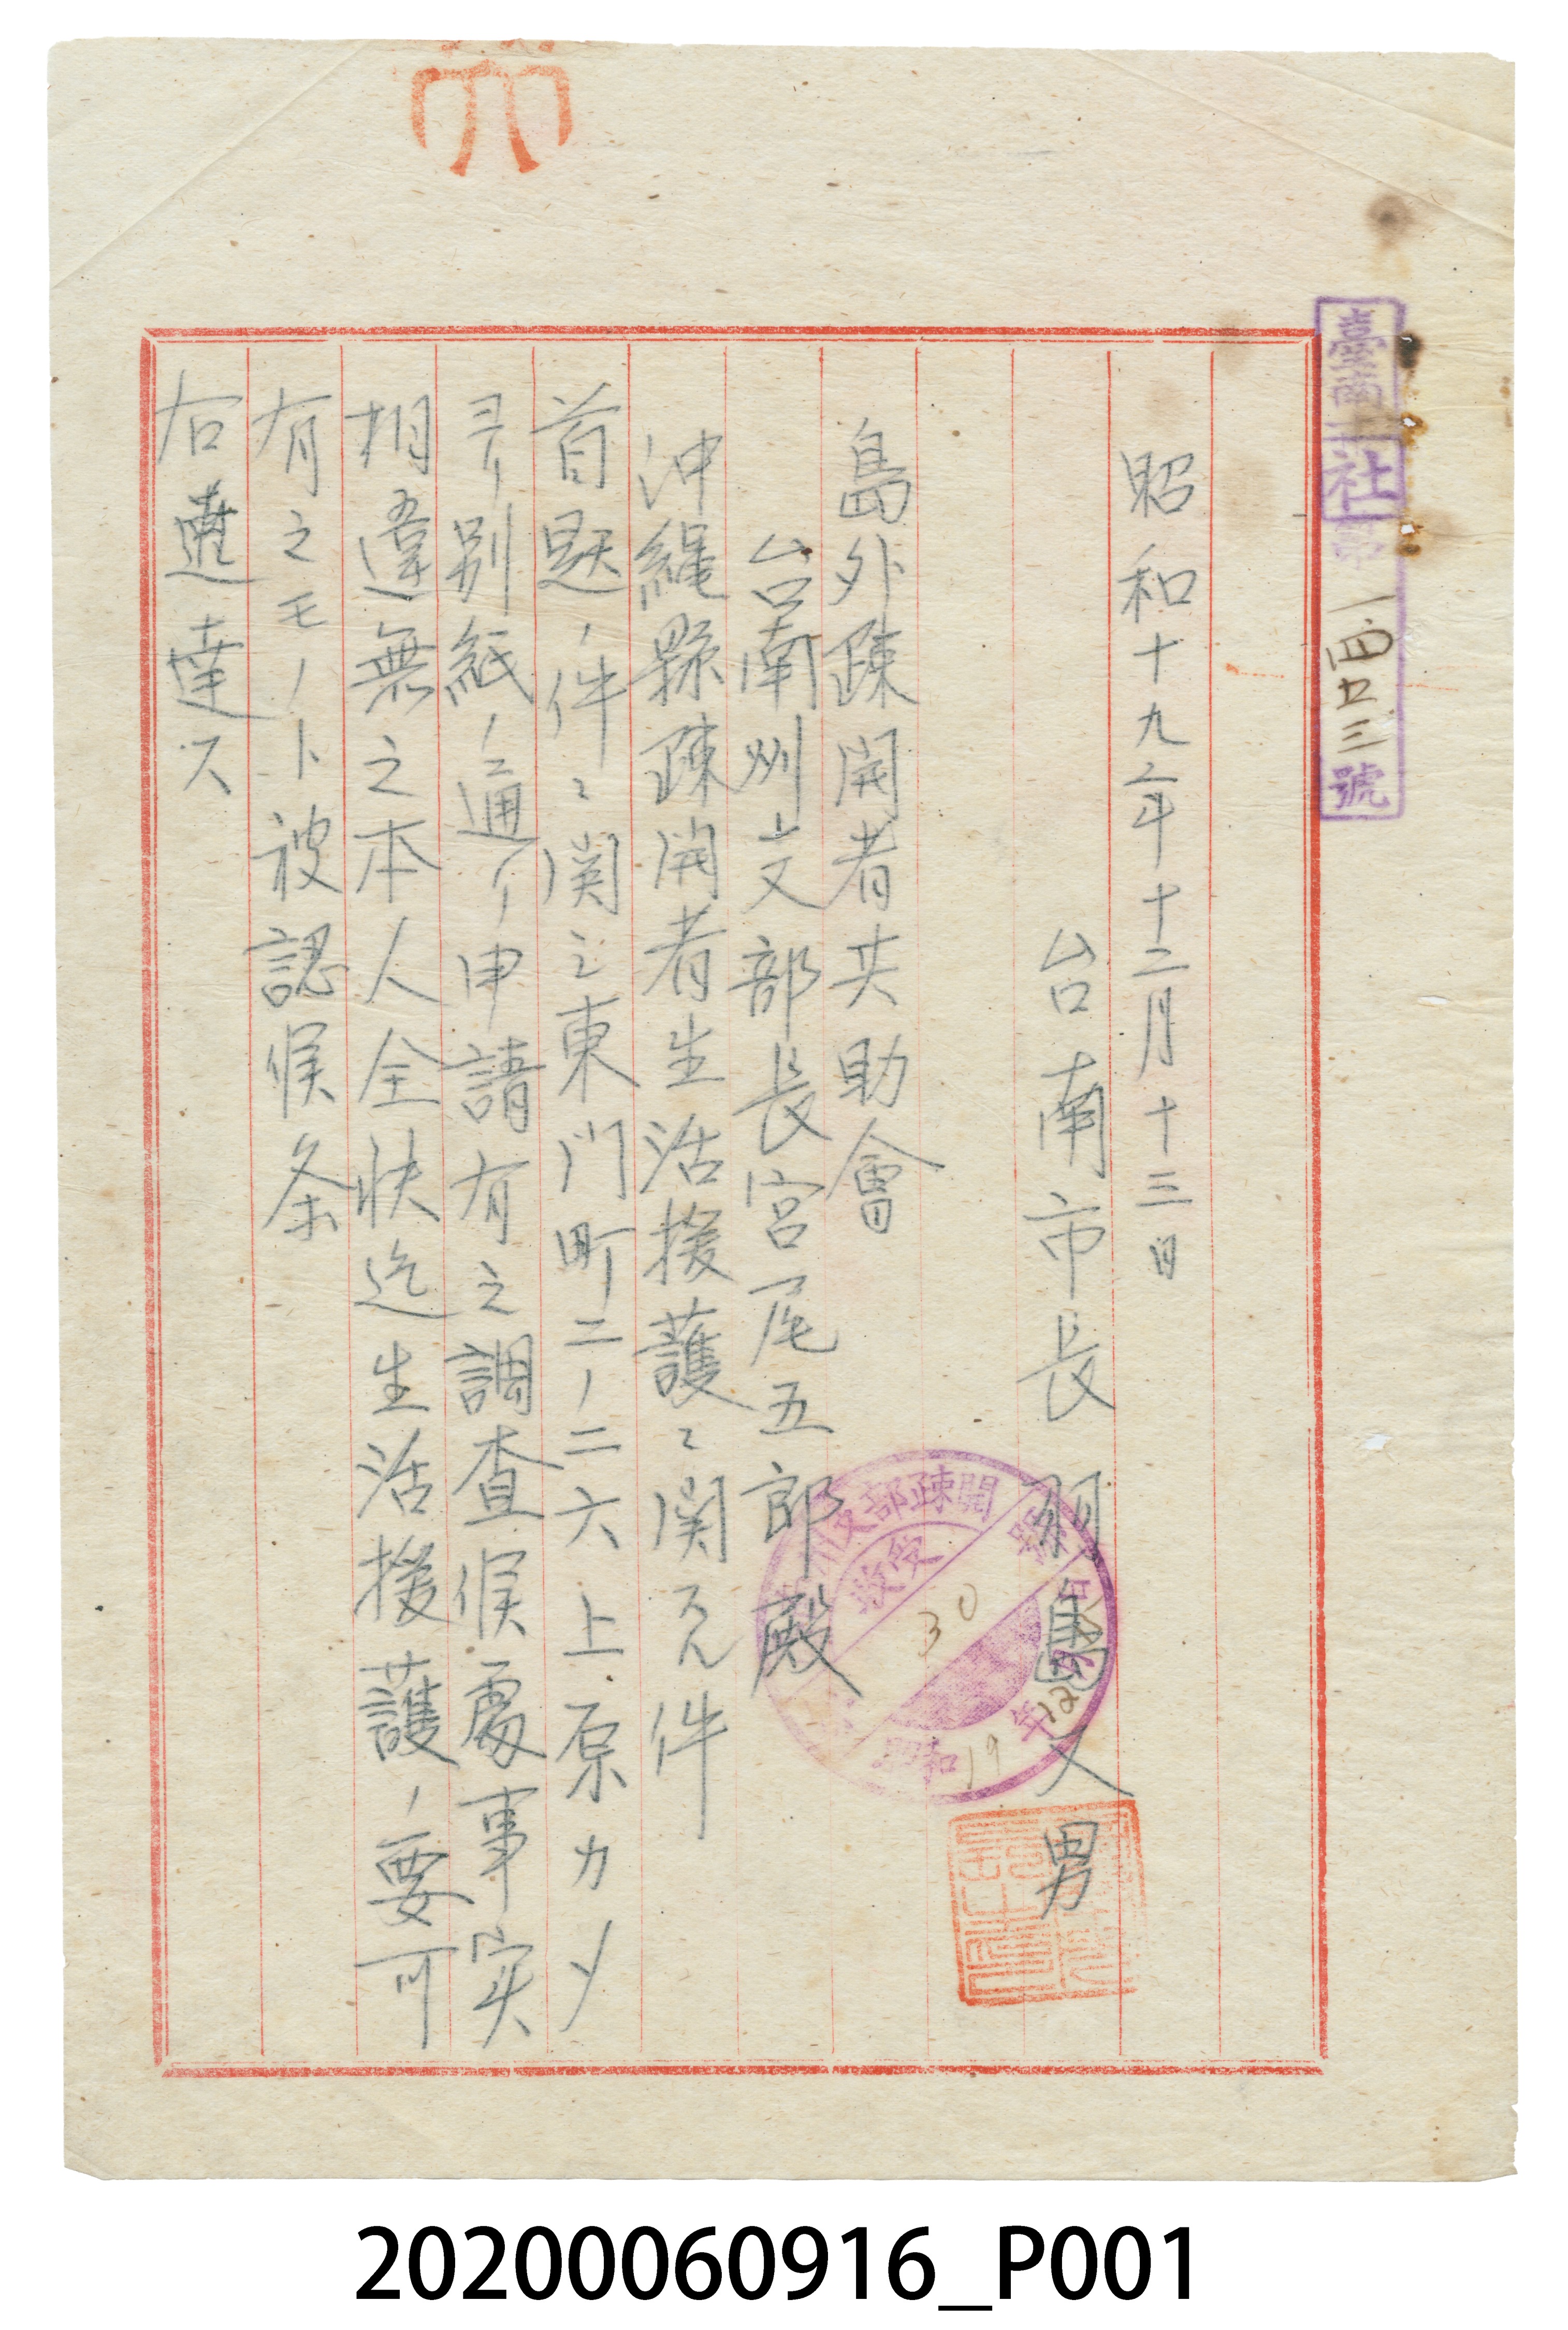 臺南社第一四廿三號
昭和十九年十二月十三日
台南市長 羽鳥又男
島外疎開者共助會
台南州支部長宮尾五郎殿
沖縄縣疎開者生活援護ニ関スル件
首題ノ件ニ関シ東門町二ノ二六上原カメ
ヨリ別紙ノ通リ申請有之調査候處事実
相違無之本人全快迄生活援護ノ要可
有之モノト被認候条
右進達ス
支部疎開
受
30
昭和19年12
20200060916_P001